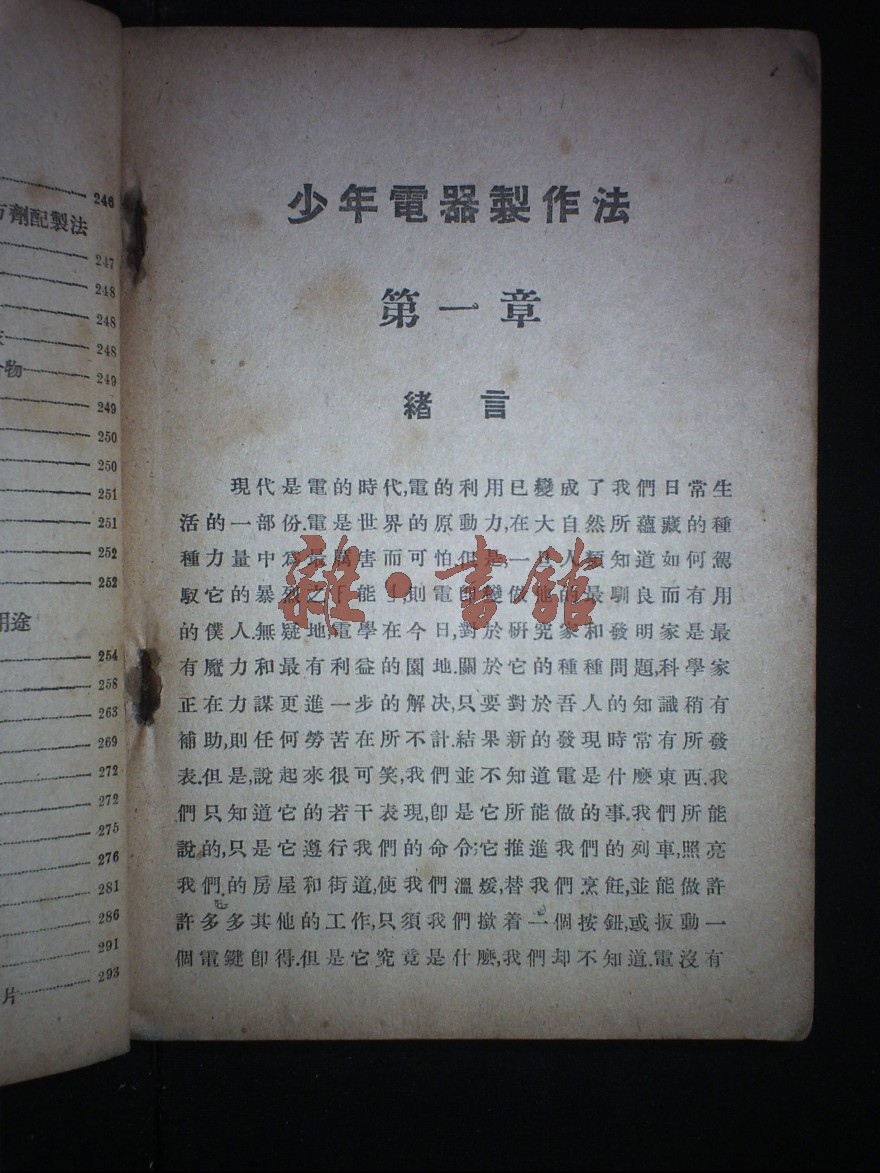 246
方劑配製法
247
248
248
248
物
249
249
250
250
251
251
252
252
用途
254
258
263
269
272
272
275
276
281
286
291
片
293
少年電器製作法
第一章
緒言
現代是電的時代,電的利用已變成了我們日常生
活的一部份.電是世界的原動力,在大自然所蘊藏的種
種力量中為最厲害而可怕.但是,一旦人類知道如何駕
馭它的暴烈之「能」,則電即變做他的最馴良而有用
的僕人.無疑地,電學在今日,對於研究家和發明家是最
有魔力和最有利益的園地.關於它的種種問題,科學家
正在力謀更進一步的解決,只要對於吾人的知識稍有
補助,則任何勞苦在所不計.結果新的發現時常有所發
表.但是,說起來很可笑,我們並不知道電是什麼東西.我
們只知道它的若干表現,卽是它所能做的事.我們所能
說的,只是它遵行我們的命令;它推進我們的列車,照亮
我們的房屋和街道,使我們溫煖,替我們烹飪,並能做許
許多多其他的工作,只須我們撳着一個按鈕,或扳動一
個電鍵卽得.但是它究竟是什麼,我們却不知道.電沒有
雜·書館